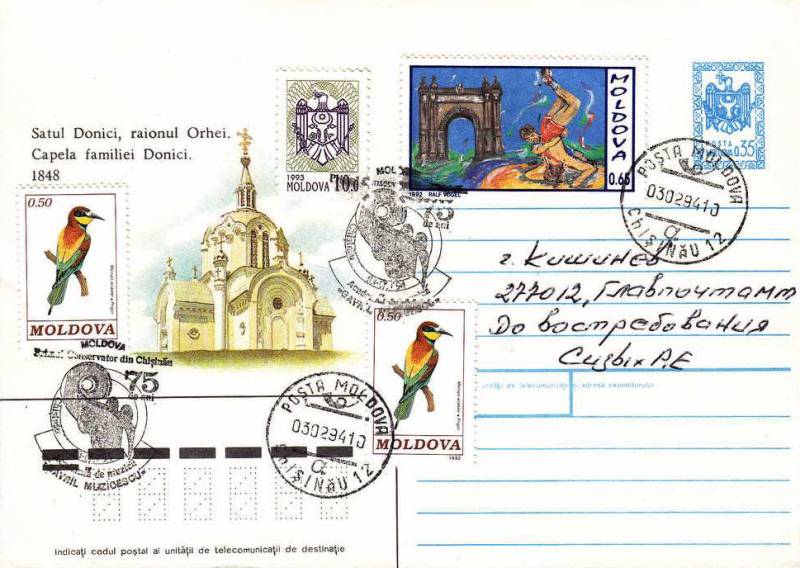 Satul Donici, raionul Orhei.
Capela familiei Donici.
1848
1993
MOLDOVA
10.
MOLDOVA
0.65
1992 RALF VOGEL
POSTA
0.35
POŞTA MOLDOVA
03029410
a
ChIŞINĂU 12
0.50
MOLDOVA
75
de ani
0.50
MOLDOVA
1992
г. Кишинев
277012, Главпочтамт
До востребования
Сизых Р.Е
MOLDOVA
Primul Conservator din Chişinău
75
de ani
de muzică
MUZICESCU»
POŞTA MOLDOVA
03029410
a
ChIŞINĂU 12
Indicaţi codul poştal al unităţii de telecomunicaţii de destinaţie